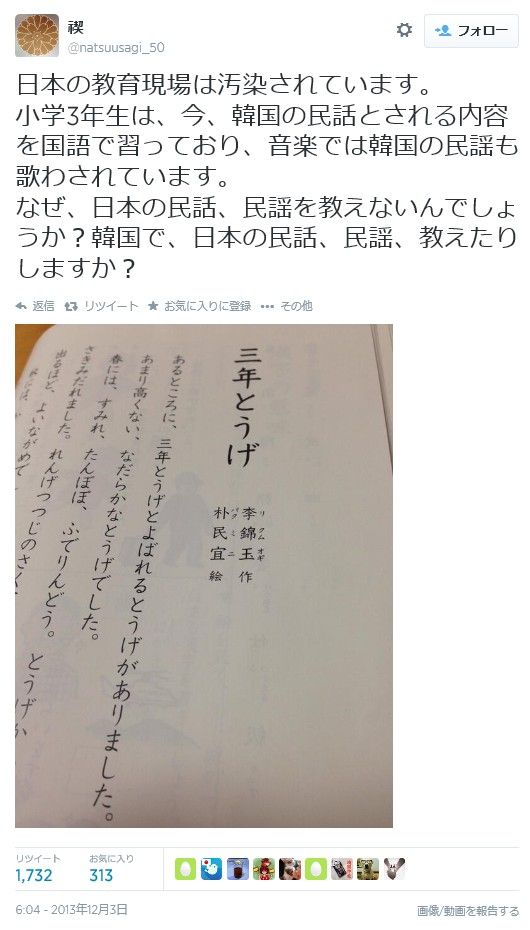 禊
@natsuusagi_50
フォロー
日本の教育現場は汚染されています。
小学3年生は、今、韓国の民話とされる内容
を国語で習っており、音楽では韓国の民謡も
歌わされています。
なぜ、日本の民話、民謡を教えないんでしょ
うか？韓国で、日本の民話、民謡、教えたり
しますか？
返信 リツイート お気に入りに登録 その他
三年とうげ
李錦玉 作
リクムオギ
朴民宜 絵
パクミニ
あるところに、三年とうげとよばれるとうげがありました。
あまり高くない、なだらかなとうげでした。
春には、すみれ、たんぽぽ、ふでりんどう。
さきみだれました。れんげつつじのさく
出るほど、よいながめで
とうげか
リツイート お気に入り
1,732 313
6:04 - 2013年12月3日
画像/動画を報告する